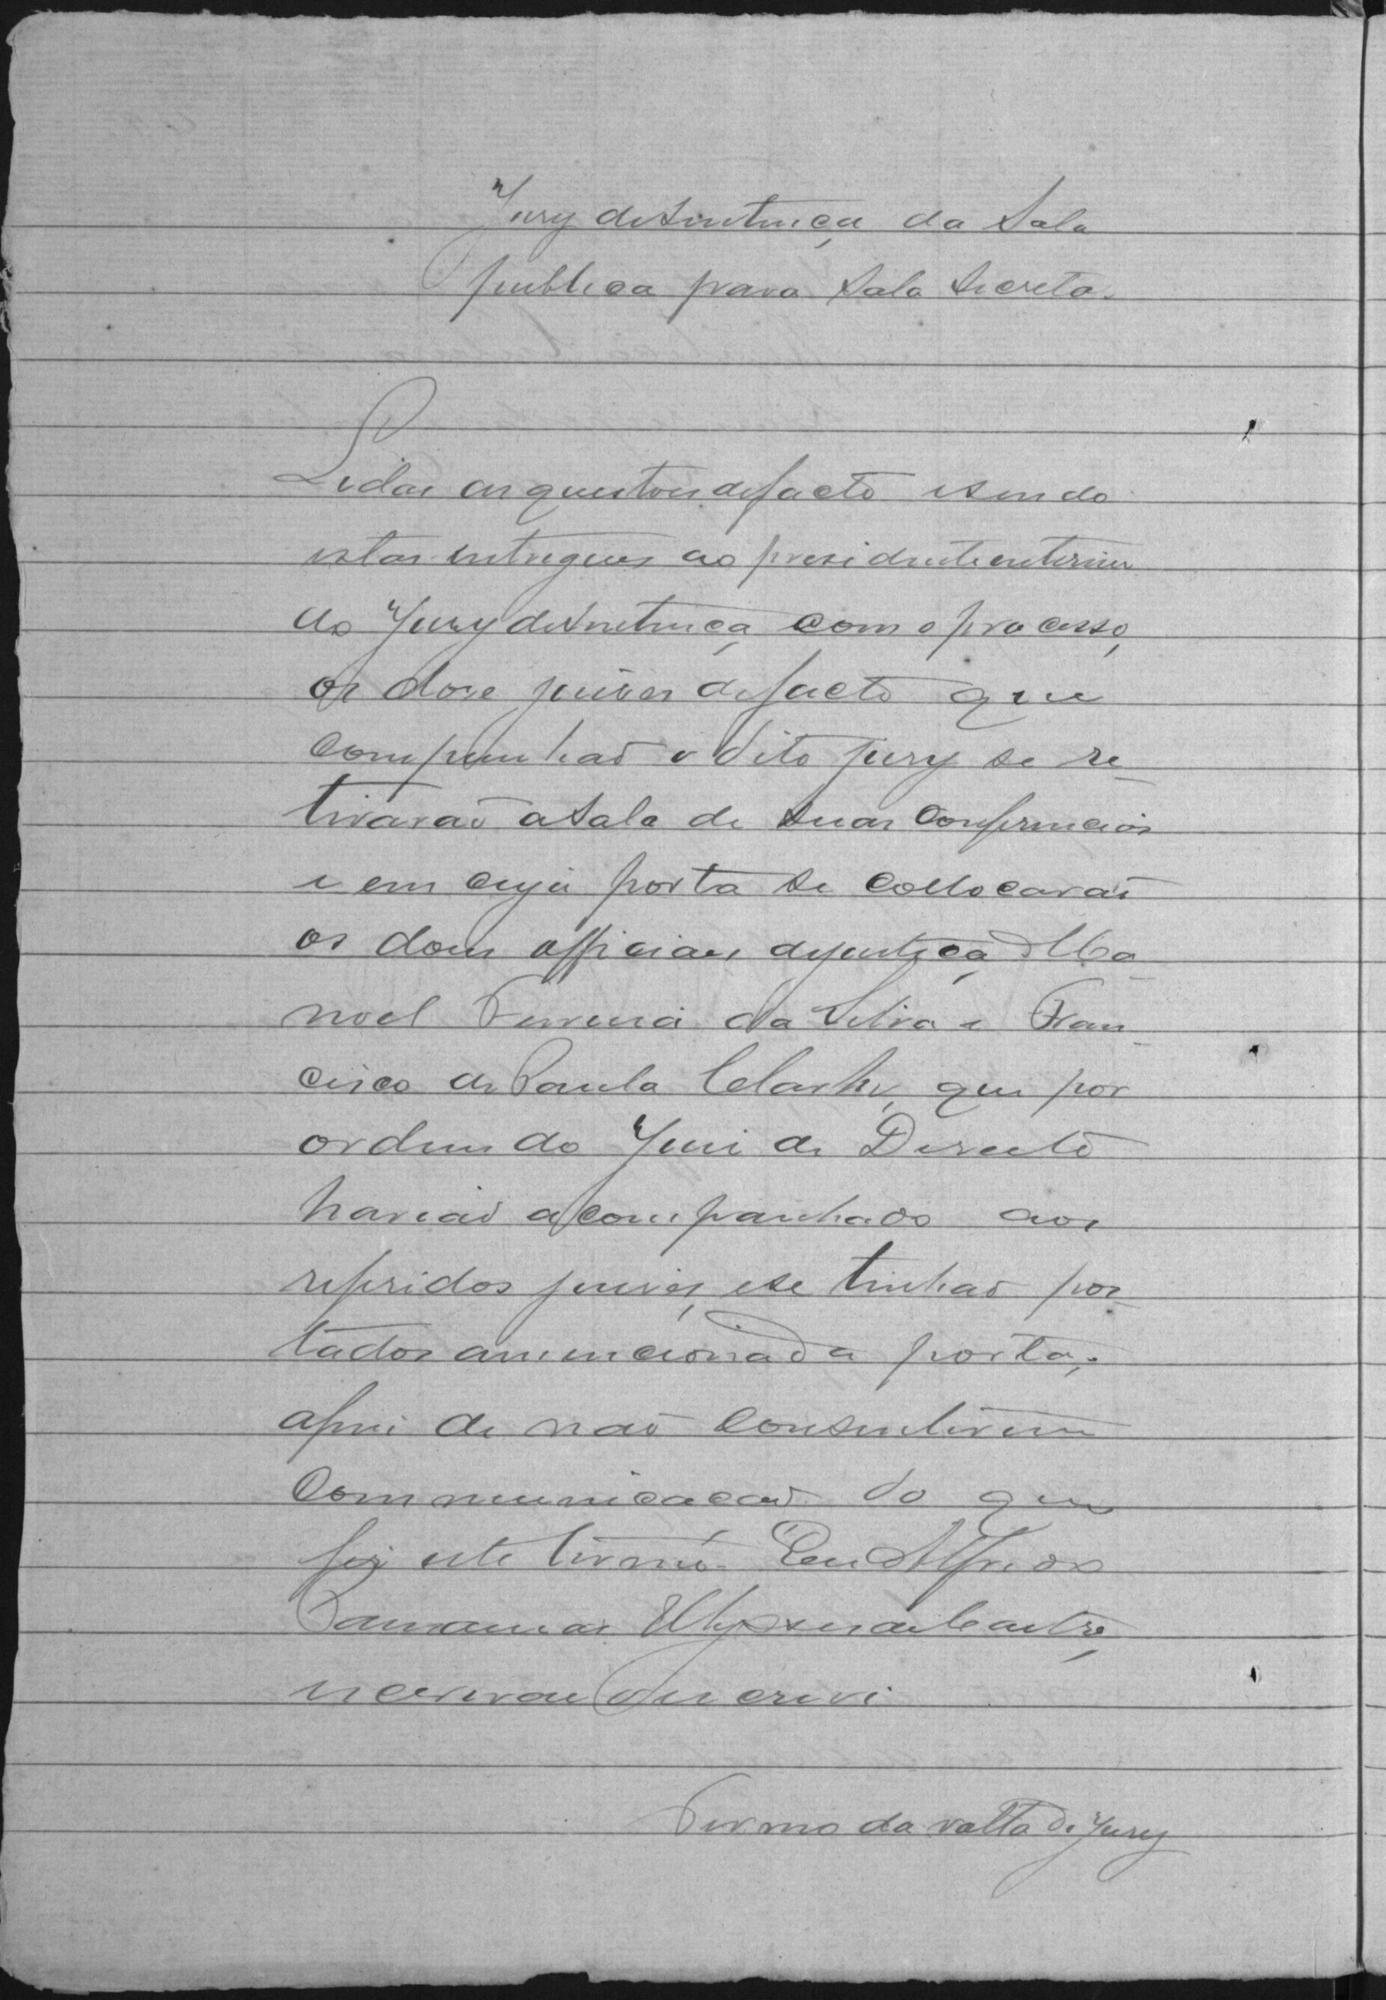 Jury de Sentença da Sala
publica para Sala Secreta.
Lidas as questoes de facto e sendo
estas entregues ao presidente interino
do Jury de Sentença com o processo,
os dose juises de facto que
compunhaõ o dito jury se re-
tiraraõ a Sala de suas Conferencias
e em cuja porta se collocaraõ
os dous officiaes de justiça Ma-
noel Ferreira da Silva e Fran-
cisco de Paula que por
ordem do Juis de Direito
haviaõ acompanhado aos
referidos juises, e se tinhaõ pos-
tados a mencionada porta,
afim de naõ consentirem
communicaçaõ do que
fis este termo. Eu Alfredo
Ulysses de Castro,
escrivaõ o escrevi
Termo da volta do Jury